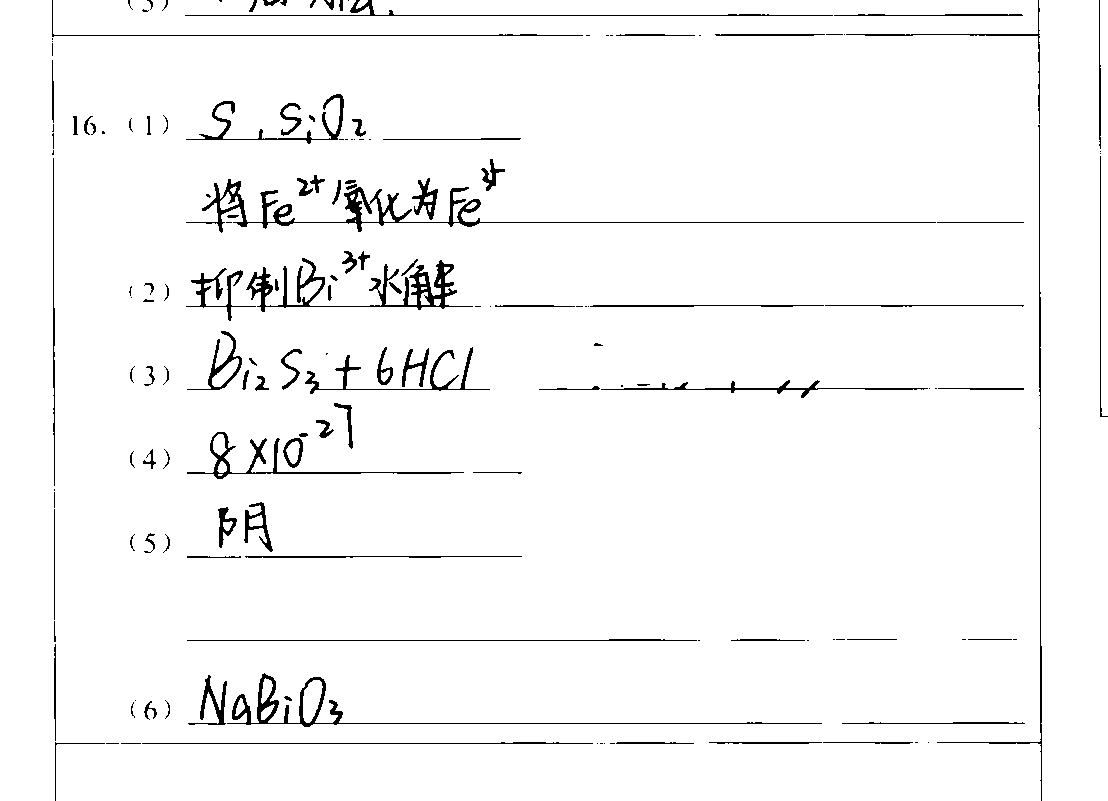 (5)
16. (1) S, SiO₂
将Fe²⁺氧化为Fe³⁺
(2) 抑制Bi³⁺水解
(3) Bi₂S₃+6HCl
(4) 8×10⁻²⁷
(5) 阴
(6) NaBiO₃